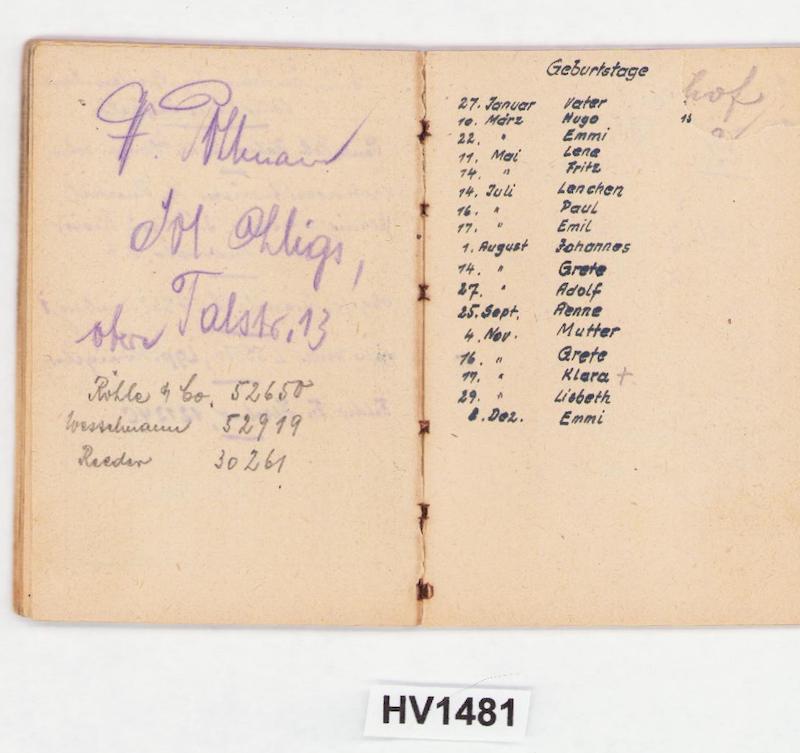 Sol. Ohligs,
obere Talstr. 13
Röhle & Co. 52650
Wesselmann 52919
Reeder 30261
Geburtstage
27. Januar Vater
10. März Hugo
22. " Emmi
11. Mai Lene
14. " Fritz
14. Juli Lenchen
16. " Paul
17. " Emil
1. August Johannes
14. " Grete
27. " Adolf
25. Sept. Aenne
4. Nov. Mutter
16. " Grete
17. " Klara +
29. " Lisbeth
8. Dez. Emmi
hof
HV1481